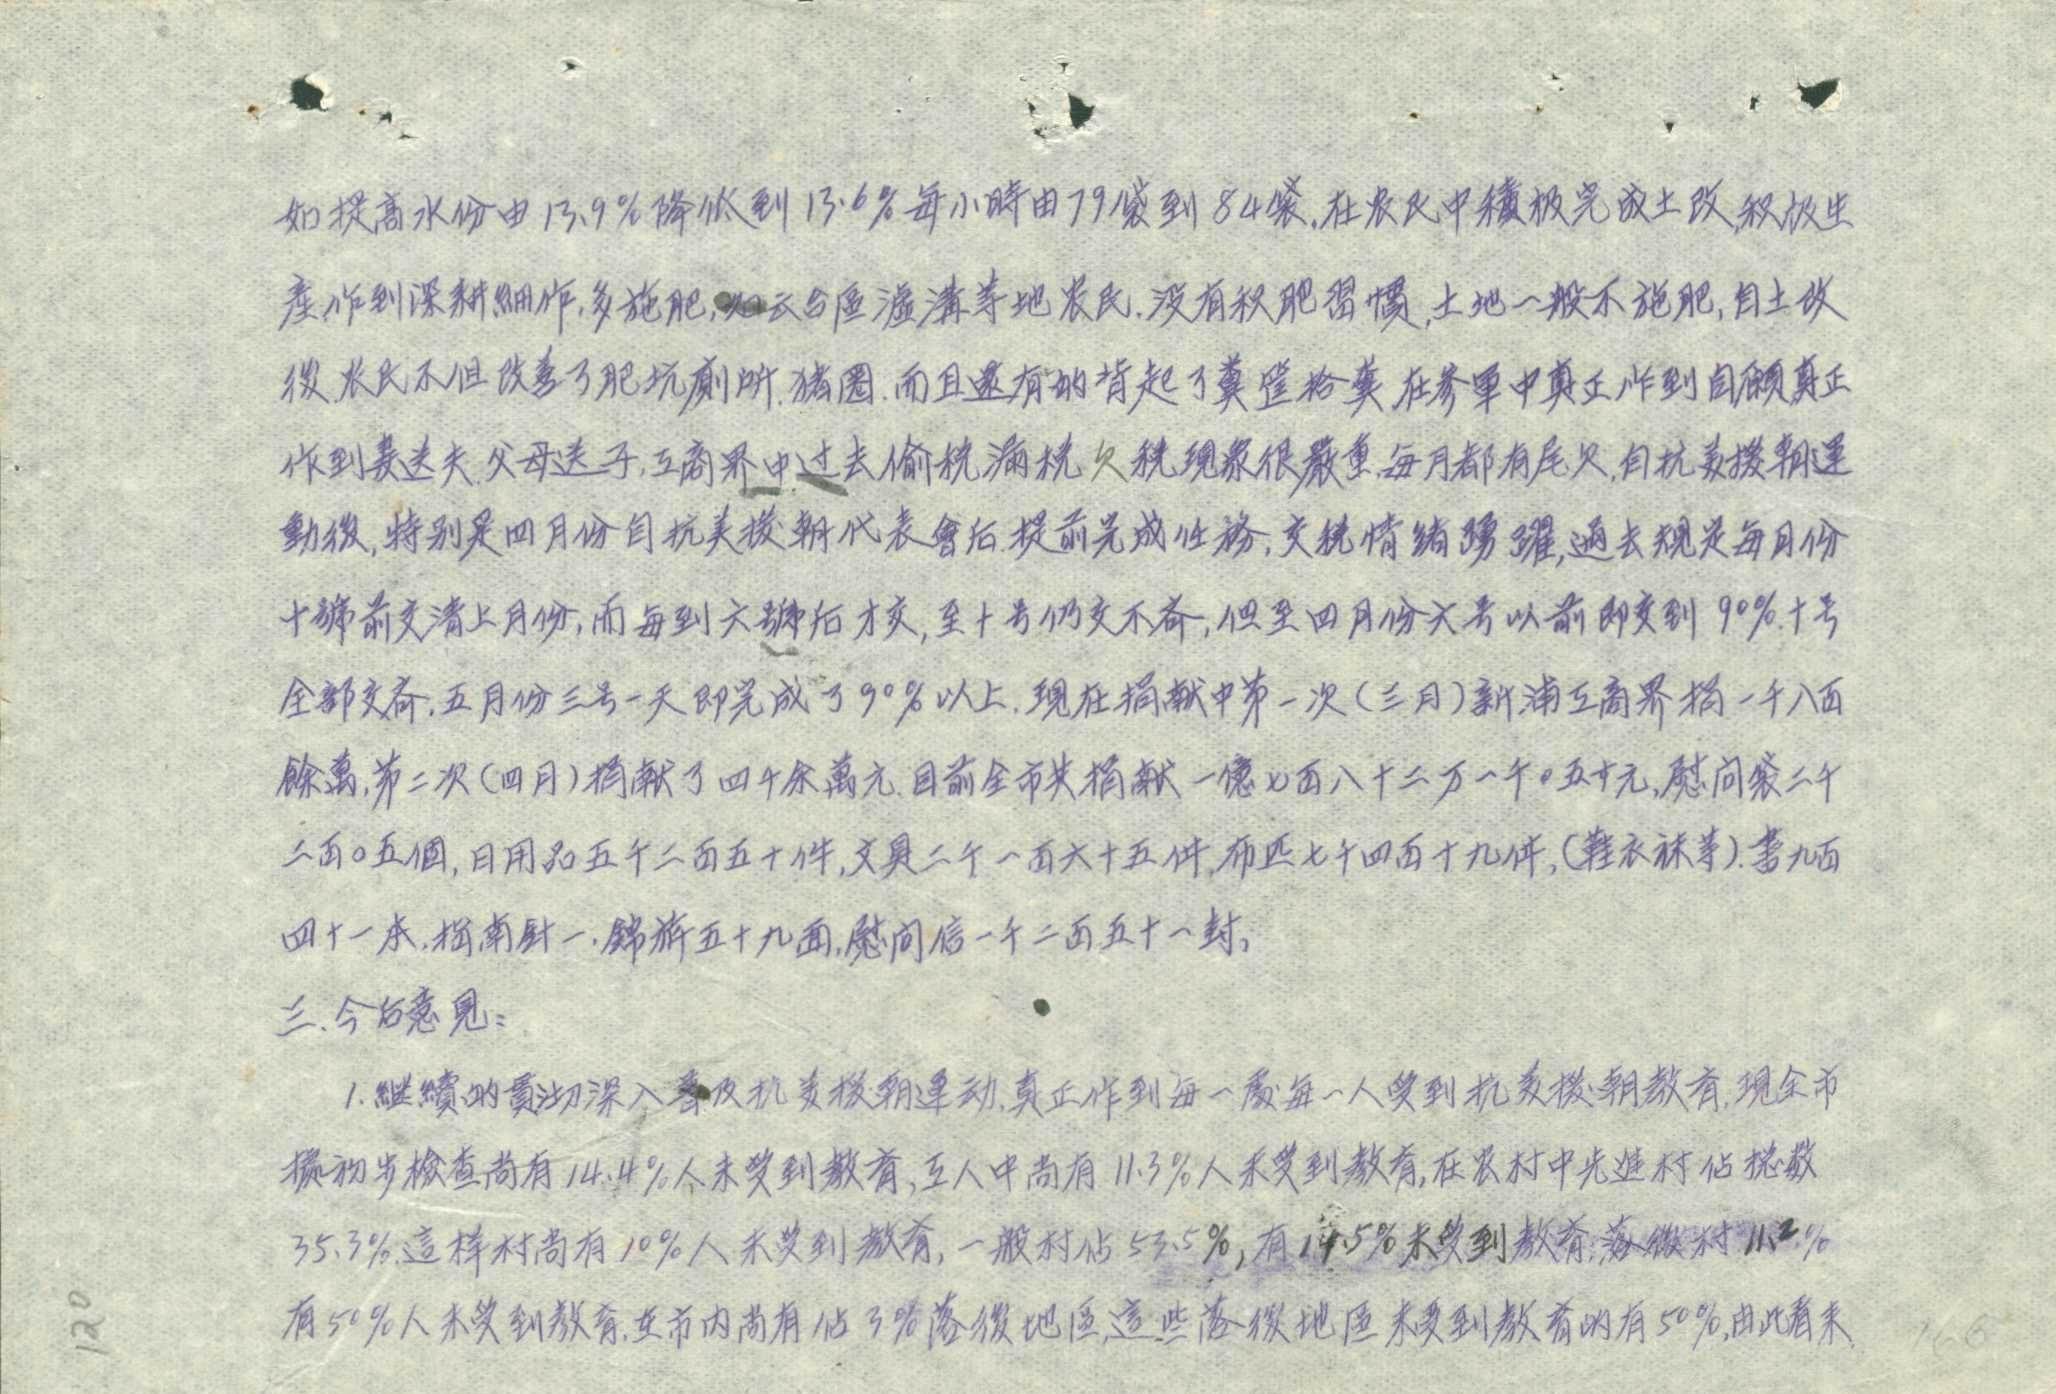 如提高水份由13.9%降低到13.6%每小時由79袋到84袋.在农民中積极完成土改,积极生
産,作到深耕細作,多施肥,如云台區滹溝等地农民.没有积肥習慣,土地一般不施肥,自土改
後.农民不但改善了肥坑厠所.猪圈.而且還有的背起了糞筐拾糞.在參軍中真正作到自願真正
作到妻送夫.父母送子,工商界中过去偷税漏税欠税現象很嚴重.每月都有尾欠,自抗美援朝運
動後,特别是四月份自抗美援朝代表會后.提前完成任務,交税情緒踴躍,過去規定每月份
十號前交清上月份,而每到六號后才交,至十号仍交不齐,但至四月份六号以前即交到90%.十号
全部交齐.五月份三号一天即完成了90%以上.現在捐献中第一次(三月)新浦工商界捐一千八百
餘萬,第二次(四月)捐献了四千余萬元.目前全市共捐献一億七百八十二万一千0五十元,慰问袋二千
二百0五個,日用品五千二百五十件,文具二千一百六十五件,布匹七千四百十九件,(鞋衣袜等).書九百
四十一本.指南針一.錦旂五十九面.慰问信一千二百五十一封,
三.今后意見:
1.継續的貫沏深入普及抗美援朝運动.真正作到每一處每一人受到抗美援朝教育.現全市
據初步檢查尚有14.4%人未受到教育,工人中尚有11.3%人未受到教育,在农村中先進村佔摠数
35.3%.這样村尚有10%人未受到教育,一般村佔53.5%,有14.5%未受到教育.落後村11.2%
有50%人未受到教育.在市内尚有佔3%落後地區.這些落後地區未受到教育的有50%,由此看来.
120
166